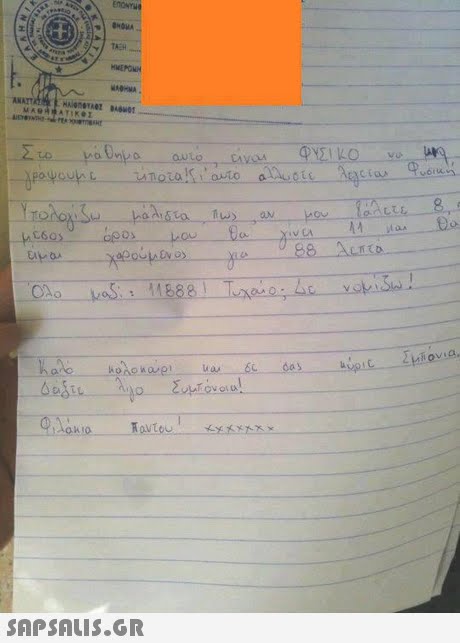 ΕΛΛΗΝΙΚΗ ΔΗΜΟΚΡΑΤΙΑ
ΕΠΩΝΥΜΟ
ΟΝΟΜΑ
ΤΑΞΗ
ΗΜΕΡΟΜΗ
ΜΑΘΗΜΑ
ΒΑΘΜΟΣ
ΜΑΘΗΜΑΤΙΚΟΣ
Στο μάθημα αυτό, είναι ΦΥΣΙΚΟ να μη
γράψουμε τίποτα! Γι'αυτό άλλωστε λέγεται Φυσική
Υπολογίζω μάλιστα πως αν μου βάλετε 8,
μέσος όρος μου θα γίνει 11 και θα
είμαι χαρούμενος για 88 λεπτα
Όλο μαζί: 11888! Τυχαίο; Δε νομίζω!
Καλό καλοκαίρι και σε σας κύριε Σμπόνια,
δείξτε λίγο Συμπόνοια!
Φιλάκια παντού! xxxxxxx
SAPSALIS.GR